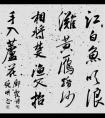 江白魚吹浪
灘黃雁踏沙
相將楚漁父招
手入蘆花